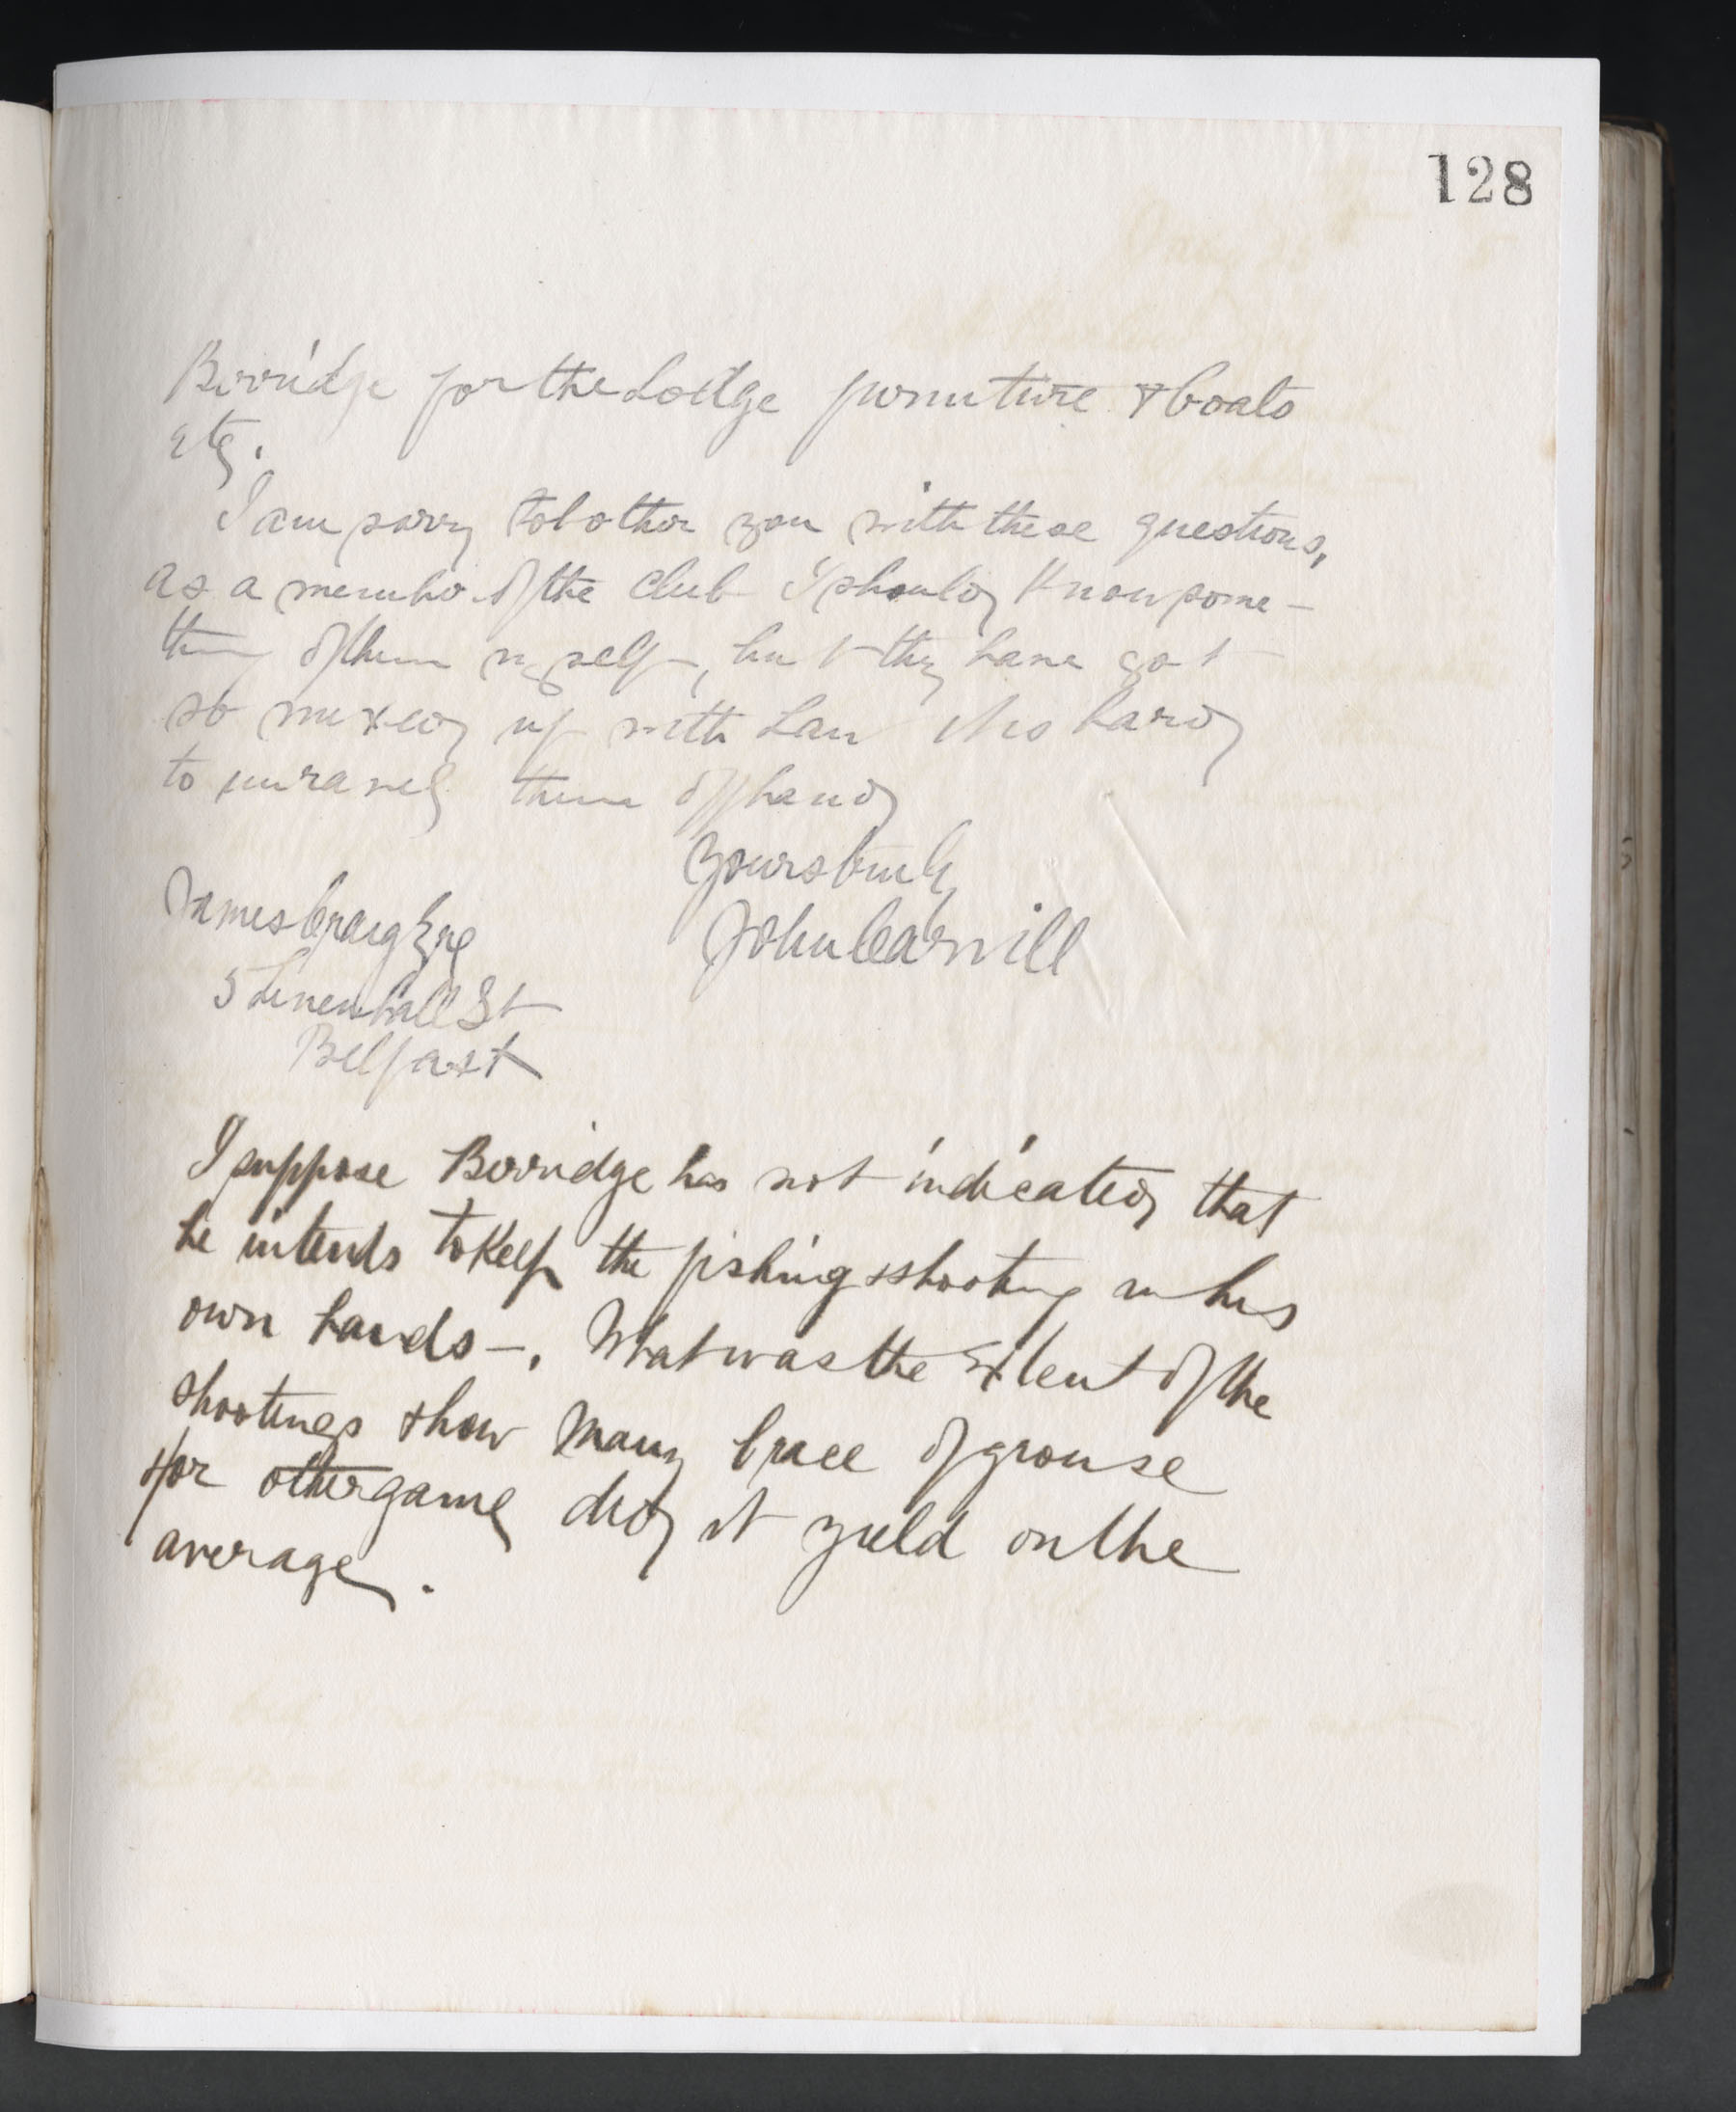 128
Berridge for the Lodge furniture & boats
etc.
I am sorry to bother you with these questions,
as a member of the Club I should know some-
thing of them myself, but they have got
so mixed up with Law it is hard
to unravel them off hand
Yours truly
John Carvill
James Craig Esq
5 Linenhall St
Belfast
I suppose Berridge has not indicated that
he intends to keep the fishing & shooting in his
own hands -. What was the extent of the
shootings & how many brace of grouse
&/or other game did it yield on the
average.